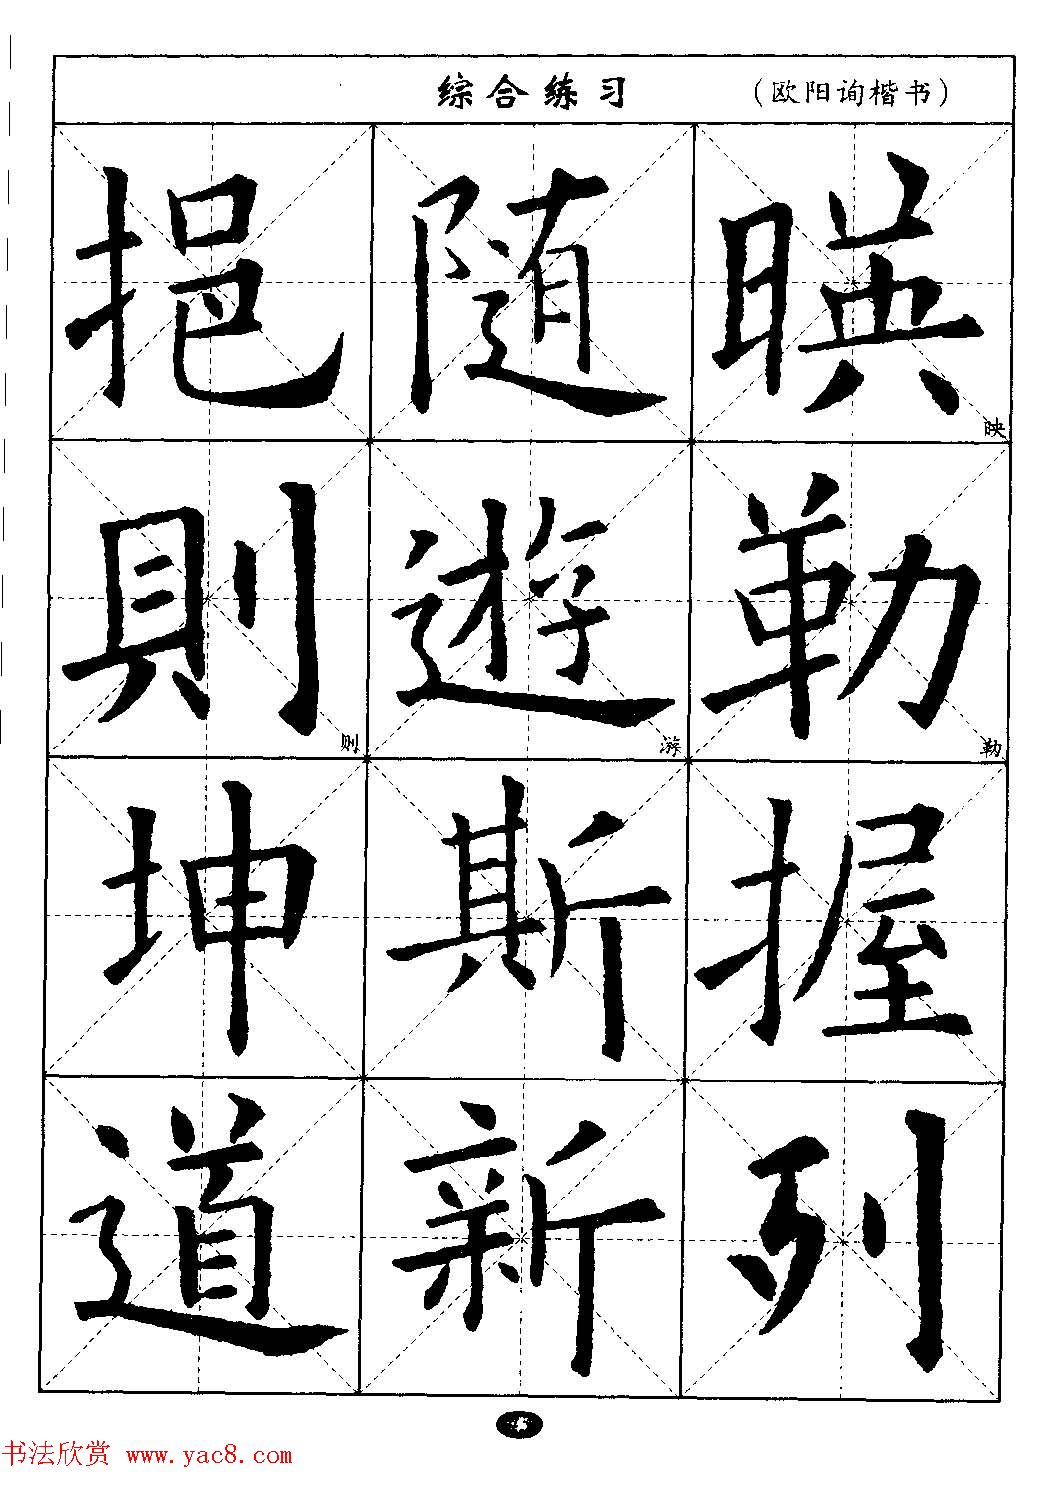 综合练习 （欧阳询楷书）
挹 随 暎 映
則 则 遊 游 勒 勒
坤 斯 握
道 新 列
书法欣赏 www.yac8.com